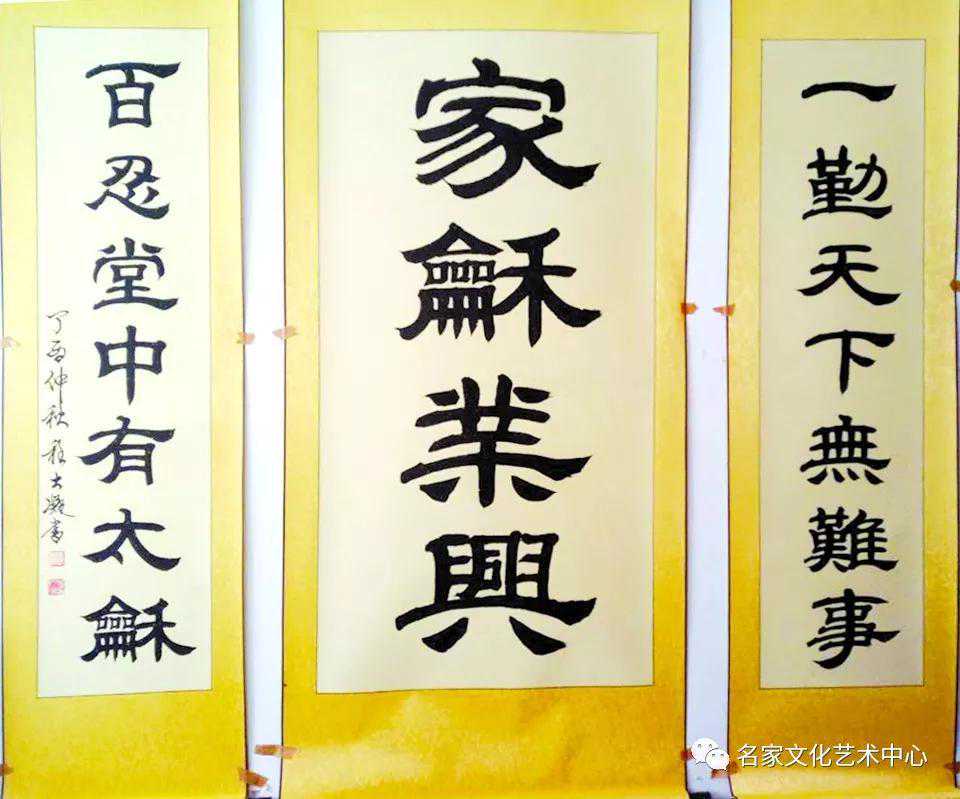 一勤天下無難事
家龢業興
百忍堂中有太龢
丁酉仲秋程大凝書
名家文化艺术中心